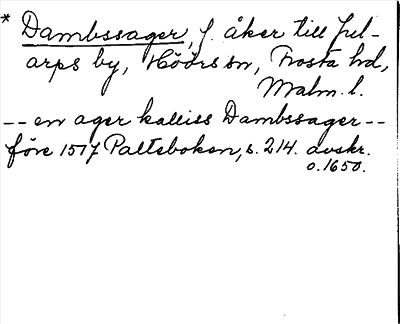 * Dambssager, f. åker till Ful-
arps by, Höörs sn, Frosta hd,
Malm. l.
-- en ager kalliss Dambssager --
före 1517 Paltebokon, s. 214. avskr.
o. 1650.